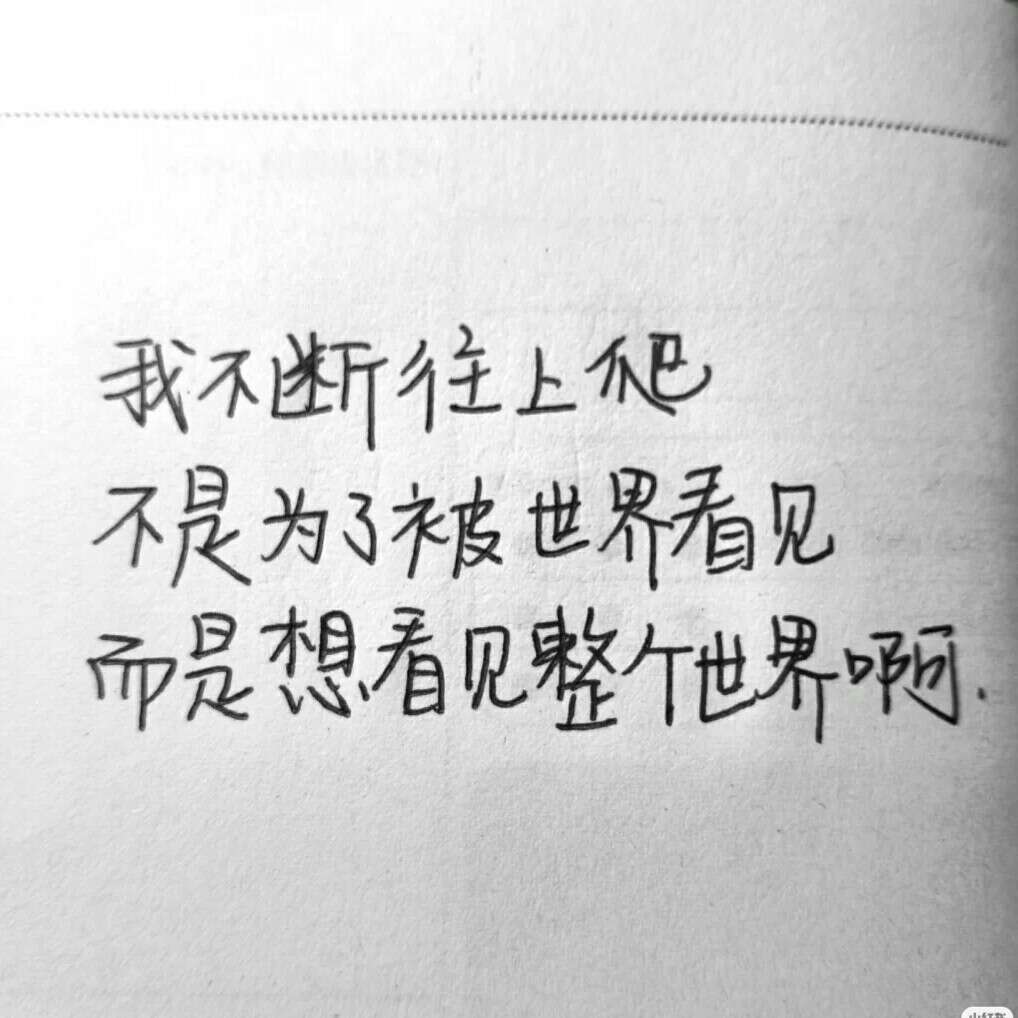 我不断往上爬
不是为了被世界看见
而是想看见整个世界啊.